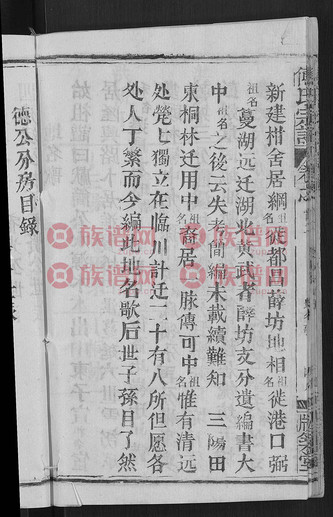 新建柑舍居網祖名徙都昌薛坊地相祖名徙港口弼
祖名蔓湖远迁湖北黄武署薛坊支分遺編書大
中祖名之後云失考簡編未載續難知 三陽田
東桐林迁用中祖名裔居一脉傳可中祖名惟有清远
处煢七獨立在临川計迁二十有八所但愿各
处人丁繁而今編此地名歌后世子孫目了然
德公分房目錄
族谱网